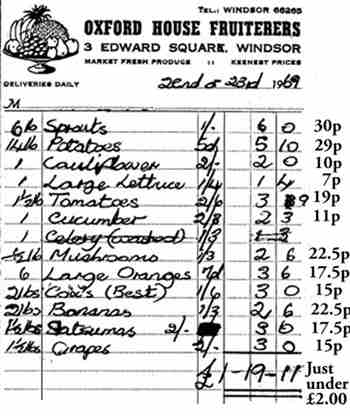 TEL.: WINDSOR 66265
OXFORD HOUSE FRUITERERS
3 EDWARD SQUARE, WINDSOR
MARKET FRESH PRODUCE :: KEENEST PRICES
DELIVERIES DAILY
22nd or 23rd 1969
M
6 lb Sprouts 1/- 6 0 30p
14 lb Potatoes 5d 5 10 29p
1 Cauliflower 2/- 2 0 10p
1 Large Lettuce 1/4 1 4 7p
1½ lb Tomatoes 2/6 3 9 19p
1 Cucumber 2/3 2 3 11p
1 Celery (washed) 1/3 1 3
½ lb Mushrooms 1/3 2 6 22.5p
6 Large Oranges 7d 3 6 17.5p
2 lbs Cox's (Best) 1/6 3 0 15p
2 lbs Bananas 1/3 2 6 22.5p
1½ lbs Satsumas 2/- 3 6 17.5p
1½ lbs Grapes 2/- 3 0 15p
£1-19-11 Just
under
£2.00